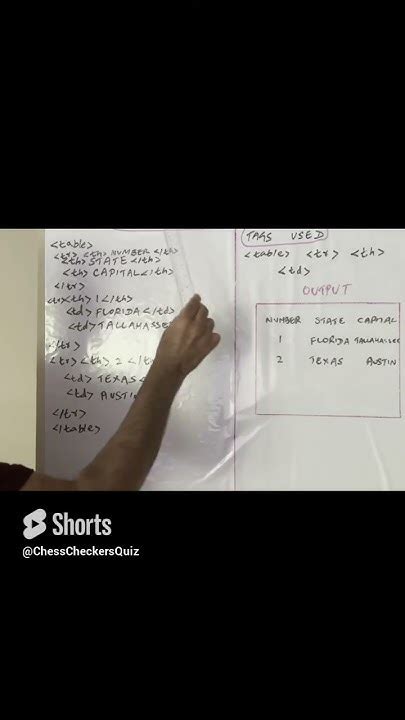 <table>
<tr> <th> NUMBER </th>
<th> STATE </th>
<th> CAPITAL </th>
</tr>
<th> 1 </th>
<td> FLORIDA </td>
<td> TALLAHASSE
</tr>
<tr> <th> 2 </t
<td> TEXAS <
<td> AUSTIN
</tr>
</table>
TAGS USED
<table> <tr> <th>
<td>
OUTPUT
NUMBER STATE CAPITAL
1 FLORIDA TALLAHASSEE
2 TEXAS AUSTIN
Shorts
@ChessCheckersQuiz